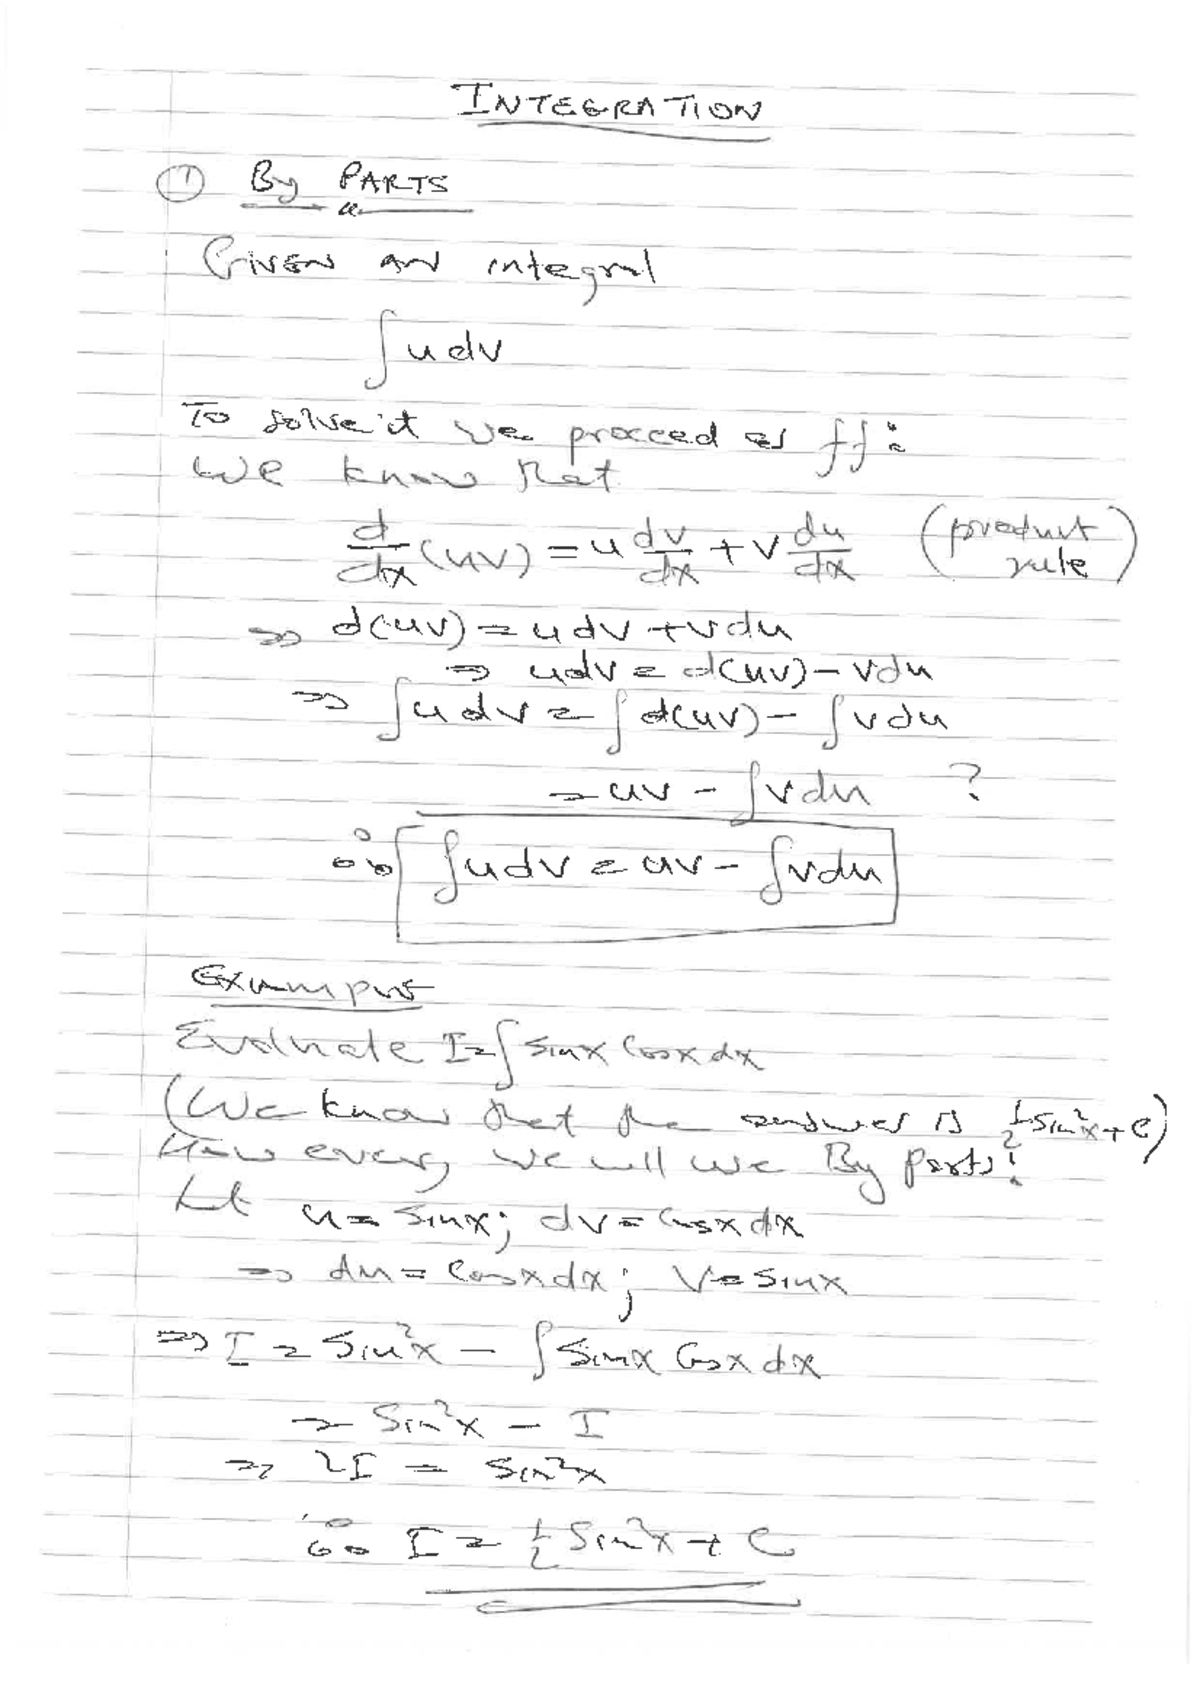 INTEGRATION
① By PARTS
GIVEN AN integral
∫udv
To solve it we proceed as ff:
We know that
d/dx (uv) = u dv/dx + v du/dx (product rule)
⇒ d(uv) = udv + vdu
⇒ udv = d(uv) - vdu
⇒ ∫udv = ∫d(uv) - ∫vdu
= uv - ∫vdu ?
∴ ∫udv = uv - ∫vdu
Example
Evaluate I = ∫ sinx cosx dx
(We know that the answer is ½ sin²x + c)
However, we will use By parts!
Let u = sinx; dv = cosx dx
⇒ du = cosx dx; v = sinx
⇒ I = sin²x - ∫ sinx cosx dx
= sin²x - I
⇒ 2I = sin²x
∴ I = ½ sin²x + c